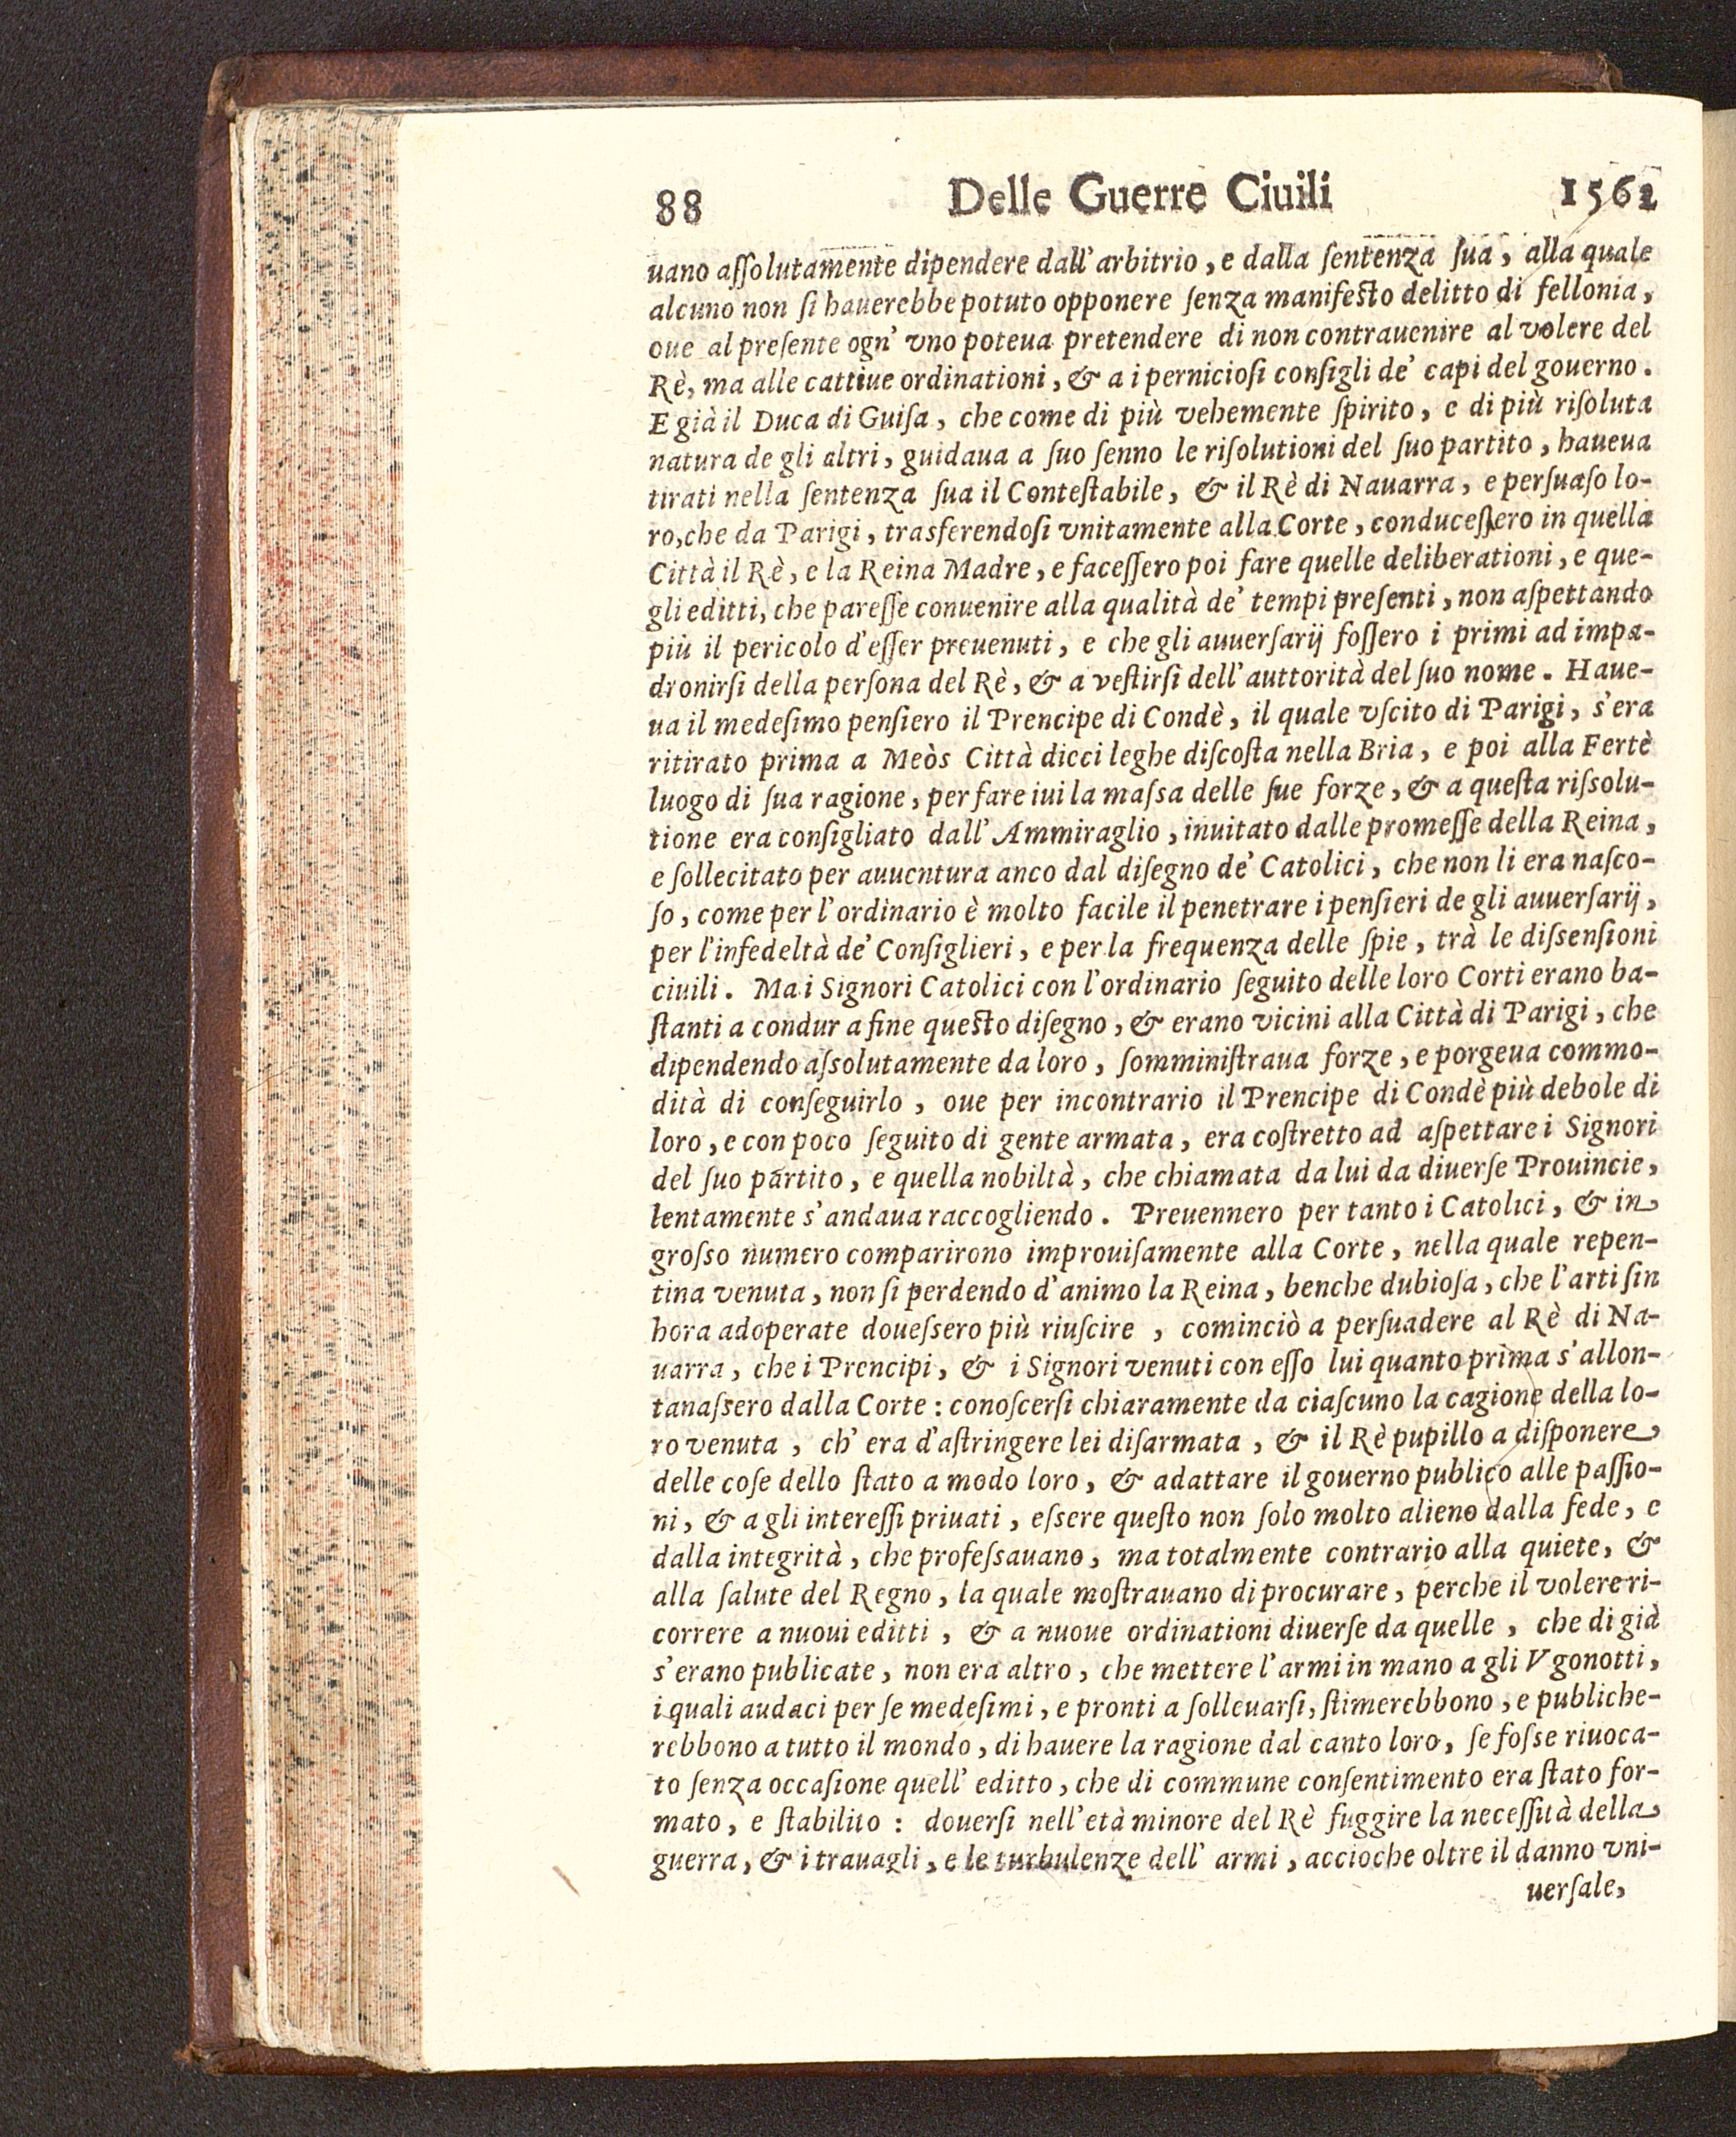 88 Delle Guerre Ciuili 1562
uano aſſolutamente dipendere dall'arbitrio, e dalla ſentenza ſua, alla quale
alcuno non ſi hauerebbe potuto opponere ſenza manifeſto delitto di fellonia,
oue al preſente ogn' vno poteua pretendere di non contrauenire al volere del
Rè, ma alle cattiue ordinationi, & a i pernicioſi conſigli de' capi del gouerno.
E già il Duca di Guiſa, che come di più vehemente ſpirito, e di più riſoluta
natura de gli altri, guidaua a ſuo ſenno le riſolutioni del ſuo partito, haueua
tirati nella ſentenza ſua il Conteſtabile, & il Rè di Nauarra, e perſuaſo lo-
ro, che da Parigi, trasferendoſi vnitamente alla Corte, conduceſſero in quella
Città il Rè, e la Reina Madre, e faceſſero poi fare quelle deliberationi, e que-
gli editti, che pareſſe conuenire alla qualità de' tempi preſenti, non aſpettando
più il pericolo d'eſſer preuenuti, e che gli auuerſarij foſſero i primi ad impa-
dronirſi della perſona del Rè, & a veſtirſi dell'auttorità del ſuo nome. Haue-
ua il medeſimo penſiero il Prencipe di Condè, il quale vſcito di Parigi, s'era
ritirato prima a Meòs Città dieci leghe diſcoſta nella Bria, e poi alla Fertè
luogo di ſua ragione, per fare iui la maſsa delle ſue forze, & a queſta riſsolu-
tione era conſigliato dall'Ammiraglio, inuitato dalle promeſſe della Reina,
e ſollecitato per auuentura anco dal diſegno de' Catolici, che non li era naſco-
ſo, come per l'ordinario è molto facile il penetrare i penſieri de gli auuerſarij,
per l'infedeltà de' Conſiglieri, e per la frequenza delle ſpie, trà le diſsenſioni
ciuili. Ma i Signori Catolici con l'ordinario ſeguito delle loro Corti erano ba-
ſtanti a condur a fine queſto diſegno, & erano vicini alla Città di Parigi, che
dipendendo aſsolutamente da loro, ſomminiſtraua forze, e porgeua commo-
dità di conſeguirlo, oue per incontrario il Prencipe di Condè più debole di
loro, e con poco ſeguito di gente armata, era coſtretto ad aſpettare i Signori
del ſuo partito, e quella nobiltà, che chiamata da lui da diuerſe Prouincie,
lentamente s'andaua raccogliendo. Preuennero per tanto i Catolici, & in
groſso numero comparirono improuiſamente alla Corte, nella quale repen-
tina venuta, non ſi perdendo d'animo la Reina, benche dubioſa, che l'arti ſin
hora adoperate doueſsero più riuſcire, cominciò a perſuadere al Rè di Na-
uarra, che i Prencipi, & i Signori venuti con eſſo lui quanto prima s'allon-
tanaſsero dalla Corte: conoſcerſi chiaramente da ciaſcuno la cagione della lo-
ro venuta, ch' era d'aſtringere lei diſarmata, & il Rè pupillo a diſponere
delle coſe dello ſtato a modo loro, & adattare il gouerno publico alle paſſio-
ni, & a gli intereſſi priuati, eſsere queſto non ſolo molto alieno dalla fede, e
dalla integrità, che profeſsauano, ma totalmente contrario alla quiete, &
alla ſalute del Regno, la quale moſtrauano di procurare, perche il volere ri-
correre a nuoui editti, & a nuoue ordinationi diuerſe da quelle, che di già
s'erano publicate, non era altro, che mettere l'armi in mano a gli Vgonotti,
i quali audaci per ſe medeſimi, e pronti a ſolleuarſi, ſtimerebbono, e publiche-
rebbono a tutto il mondo, di hauere la ragione dal canto loro, ſe foſse riuoca-
to ſenza occaſione quell' editto, che di commune conſentimento era ſtato for-
mato, e ſtabilito: douerſi nell'età minore del Rè fuggire la neceſſità della
guerra, & i trauagli, e le turbulenze dell' armi, accioche oltre il danno vni-
uerſale,